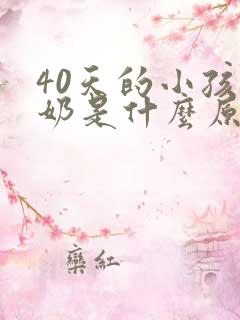 40天的小孩
奶是什麼原
欒紅